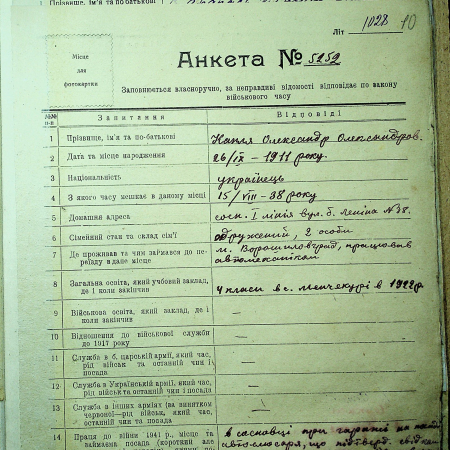 Літ 1028 10
Місце
для
фотокартки
Анкета № 5252
Заповнюється власноручно, за неправдиві відомості відповідає по закону
військового часу
№№ п-п Запитання Відповіді
1 Прізвище, ім'я та по-батькові Олександр Олександров.
2 Дата та місце народження 26/IX – 1911 року.
3 Національність українець
4 З якого часу мешкає в даному місці 15/VIII – 38 року
5 Домашня адреса сосн. I лінія вул. б. Леніна № 38.
6 Сімейний стан та склад сім'ї одружений, 2 особи
7 Де проживав та чим займався до пе- м. Ворошиловград, працював
реїзду в дане місце автомеханіком
8 Загальна освіта, який учбовий заклад, 4 класи в с. в 1922 р
де і коли закінчив
9 Військова освіта, який заклад, де і —
коли закінчив
10 Відношення до військової служби —
до 1917 року
11 Служба в б. царській армії, який час, —
рід військ та останній чин і
посада
12 Служба в Українській армії, який час, —
рід військ та останній чин і посада
13 Служба в інших арміях (за винятком —
червоної—рід військ, який час,
останній чин та посада
14 Праця до війни 1941 р., місто та при гаражі
займана посада (короткий але що підтверд.